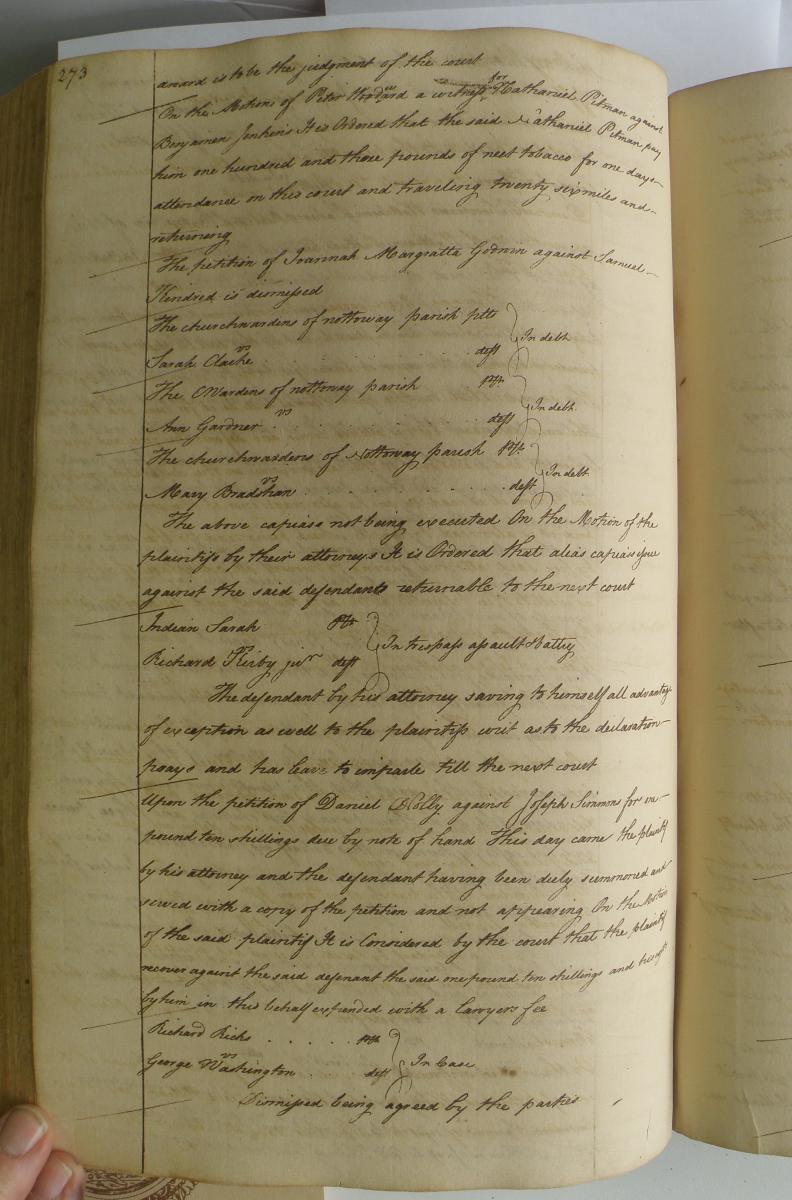 273
award is to be the judgment of the court
On the Motions of Peter Woodard a witness for Nathaniel Pitman against
Benjamen Jenkins It is Ordered that the said Nathaniel Pitman pay
him one hundred and three pounds of neet tobacco for one days
attendance on this court and traveling twenty six miles and
returning
The petition of Joannah Margratta Godwin against Samuel
Kindred is dismissed
The churchwardens of nottoway parish plts
vs In debt
Sarah Clarke deft
The CWardens of nottoway parish plts
vs In debt
Ann Gardner deft
The churchwardens of Nottoway parish plts
vs In debt
Mary Bradshaw deft
The above capiass not being executed On the Motion of the
plaintifs by their attorneys It is Ordered that alias capias issue
against the said defendants returnable to the next court
Indian Sarah plt
vs In trespass assault & battry
Richard Kirby junr deft
The defendant by his attorney saving to himself all advantage
of exception as well to the plaintifs writ as to the declaration
prays and has leave to imparle till the next court
Upon the petition of Daniel against Joseph Simmons for one
pound ten shillings due by note of hand This day came the plaintif
by his attorney and the defendant having been duly summoned and
served with a copy of the petition and not appearing On the Motion
of the said plaintif It is Considered by the court that the plaintif
recover against the said defenant the said one pound ten shillings and his cost
by him in this behalf expended with a lawyers fee
Richard Ricks plt
vs In Case
George Washington deft
Dismissed being agreed by the parties